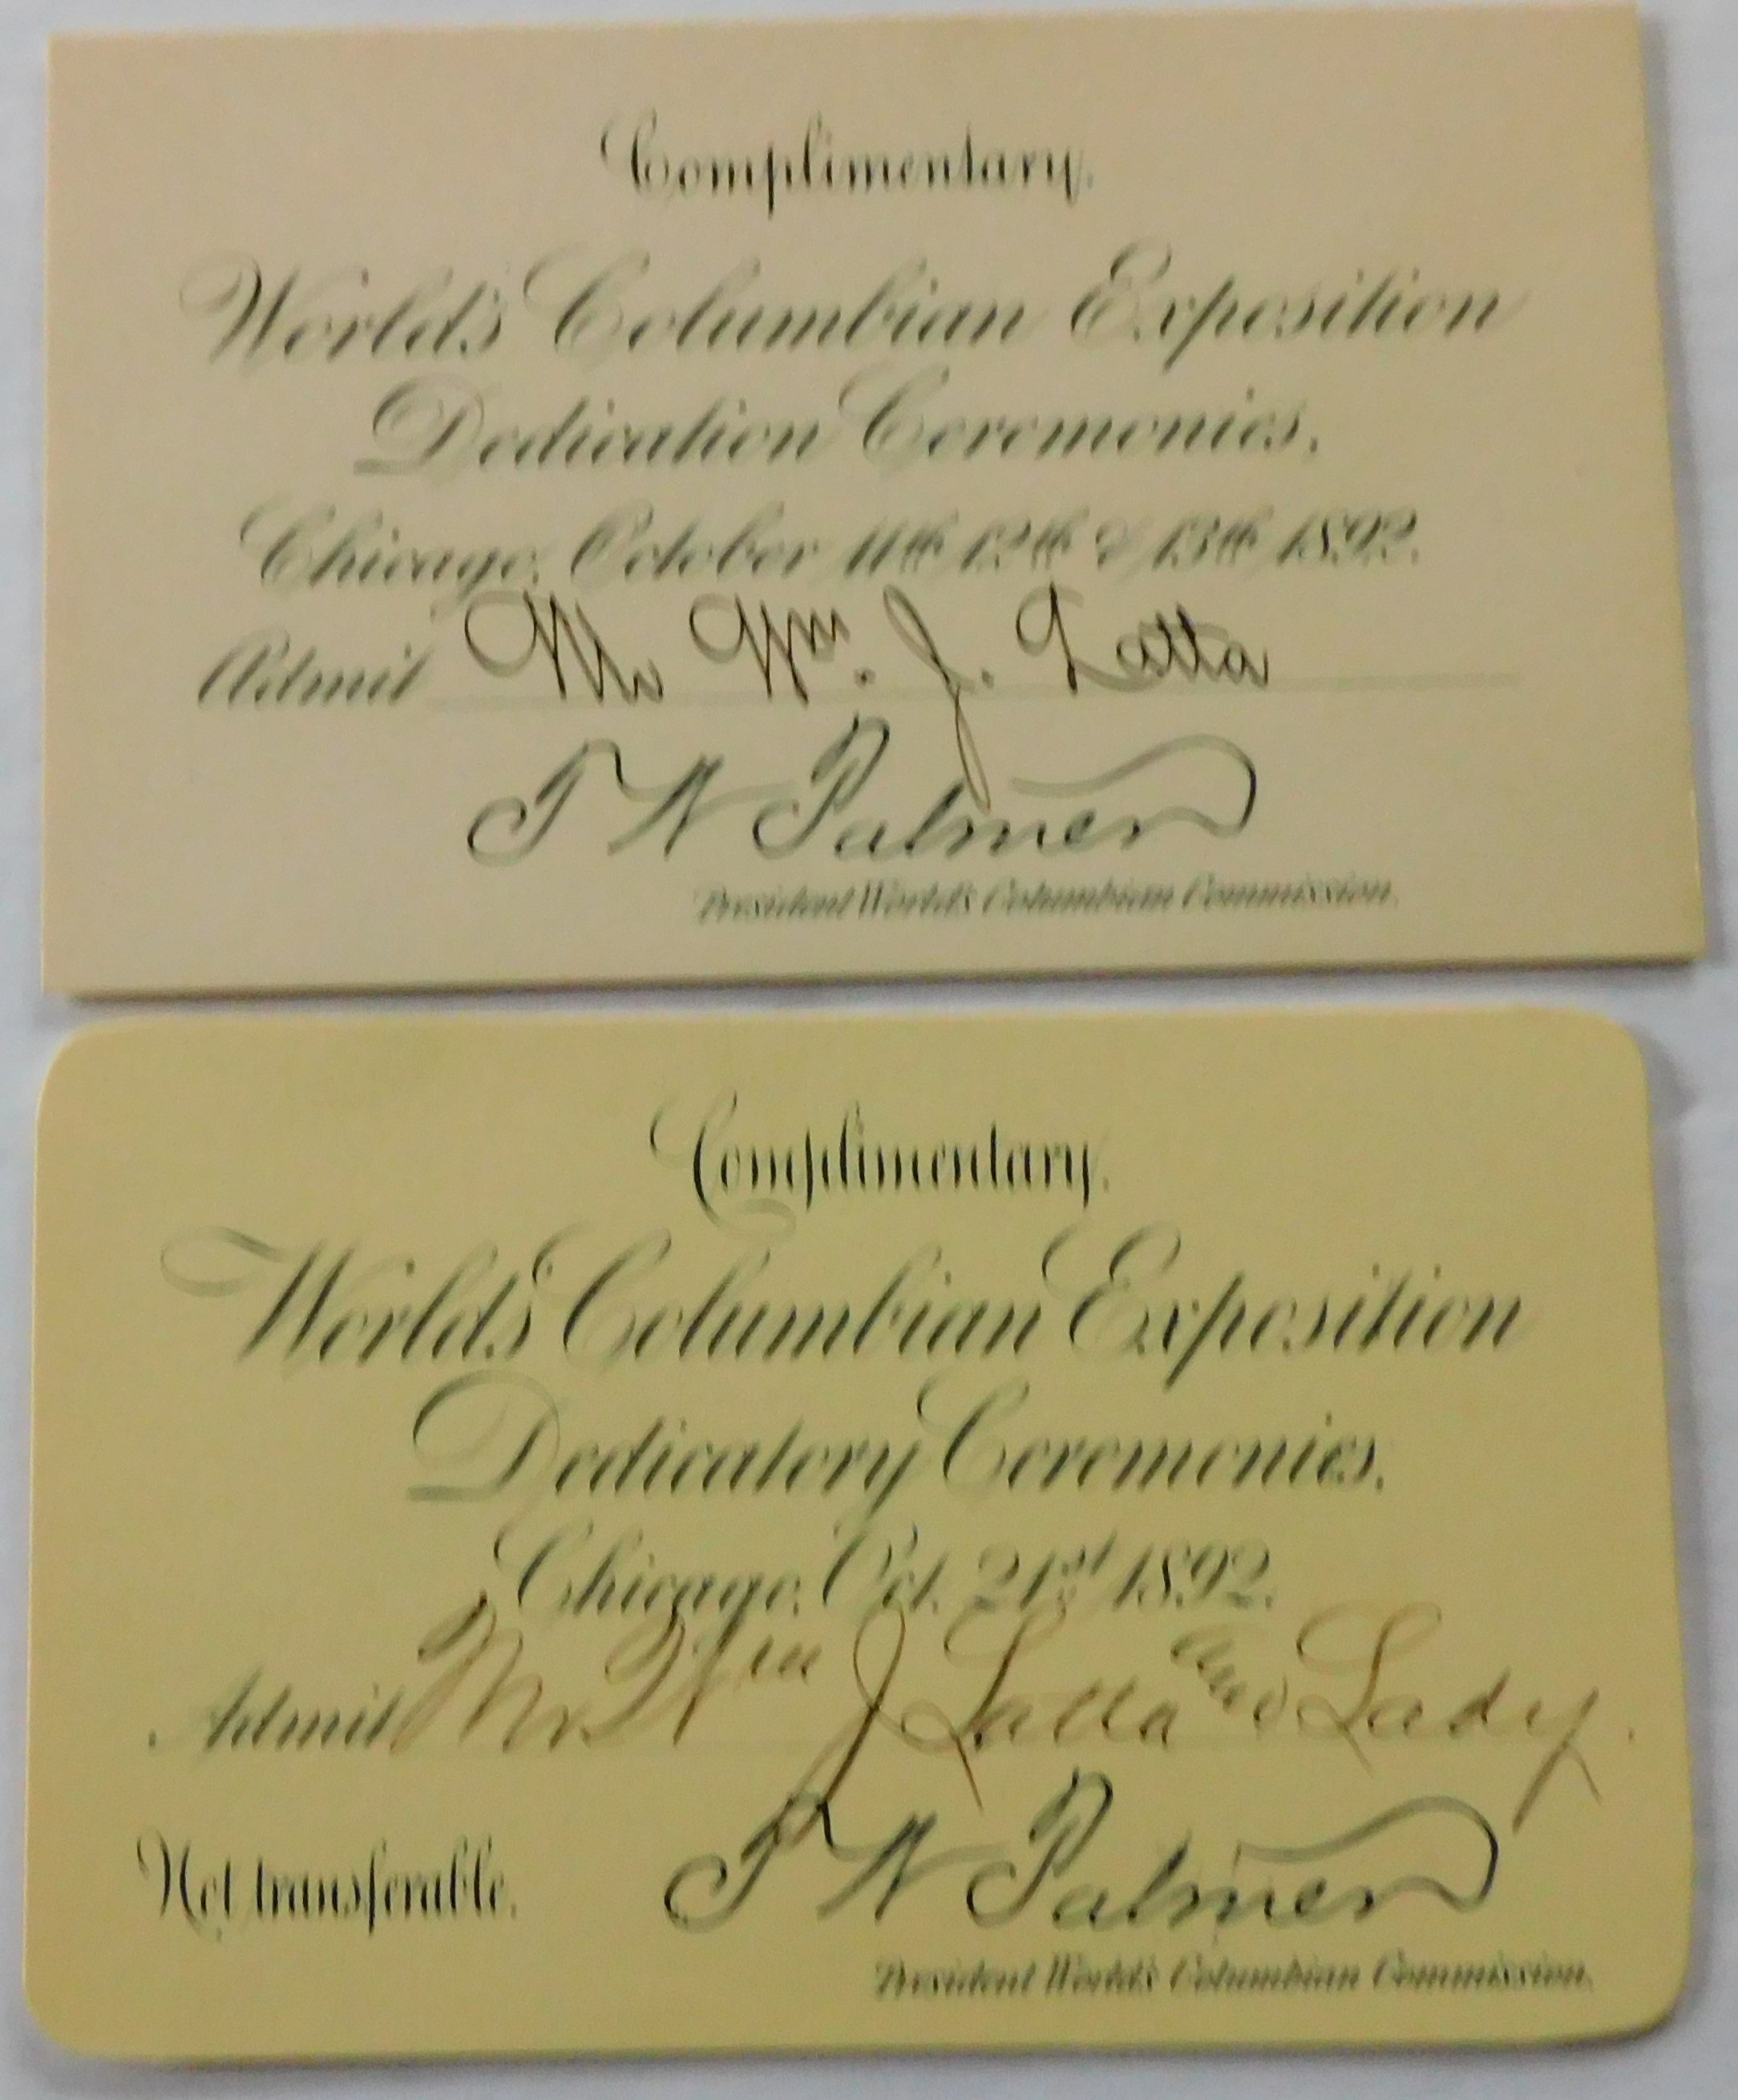 Complimentary.
World's Columbian Exposition
Dedication Ceremonies.
Chicago, October 11th 12th & 13th 1892.
Admit Mr Wm. J. Latta
T W Palmer
President World's Columbian Commission.
Complimentary.
World's Columbian Exposition
Dedicatory Ceremonies.
Chicago, Oct. 21st 1892.
Admit Mr Wm J Latta and Lady.
Not transferable.
T W Palmer
President World's Columbian Commission.